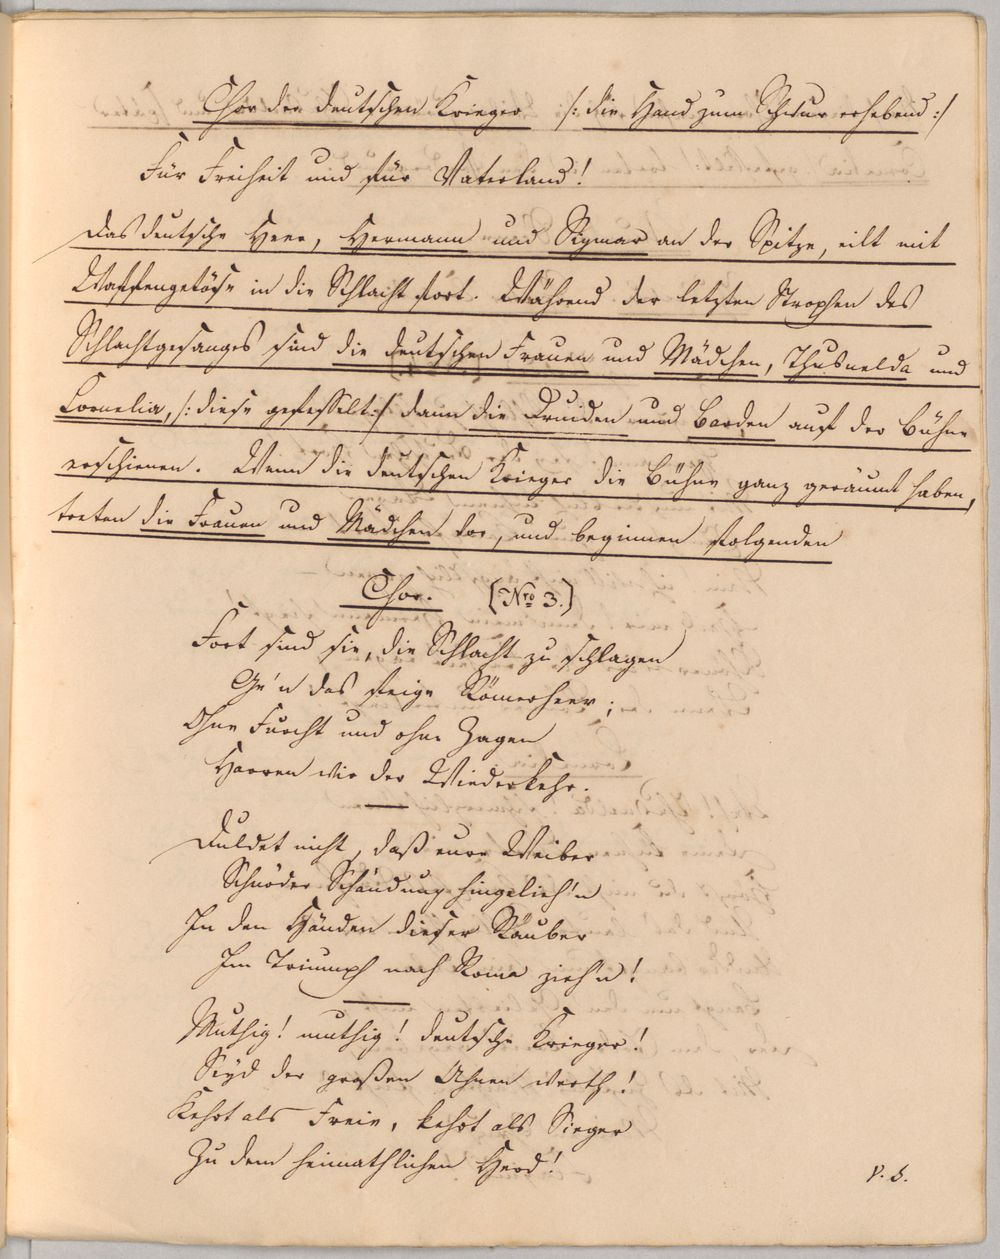 Chor der deutschen Krieger /: die Hand zum Schwur erhebend :/
Für Freiheit und für Vaterland!
Das deutsche Heer, Hermann und Sigmar an der Spitze, eilt mit
Waffengetöse in die Schlacht fort. Während der letzten Strophen des
Schlachtgesanges sind die deutschen Frauen und Mädchen, Thusnelda und
Cornelia, /: diese gefesselt :/ dann die Druiden und Barden auf der Bühne
erschienen. Wenn die deutschen Krieger die Bühne ganz geräumt haben,
treten die Frauen und Mädchen vor, und beginnen folgenden
Chor. (Nro 3.)
Fort sind sie, die Schlacht zu schlagen
Ge'n das feige Römerheer;
Ohne Furcht und ohne Zagen
Harren wir der Wiederkehr.
Duldet nicht, daß eure Weiber
Schnöder Schändung hingelieh'n
In den Händen dieser Räuber
Im Triumph nach Roma zieh'n!
Muthig! muthig! deutsche Krieger!
Seyd der großen Ahnen werth!
Kehrt als Freie, kehrt als Sieger
Zu dem heimathlichen Herd!
V. S.